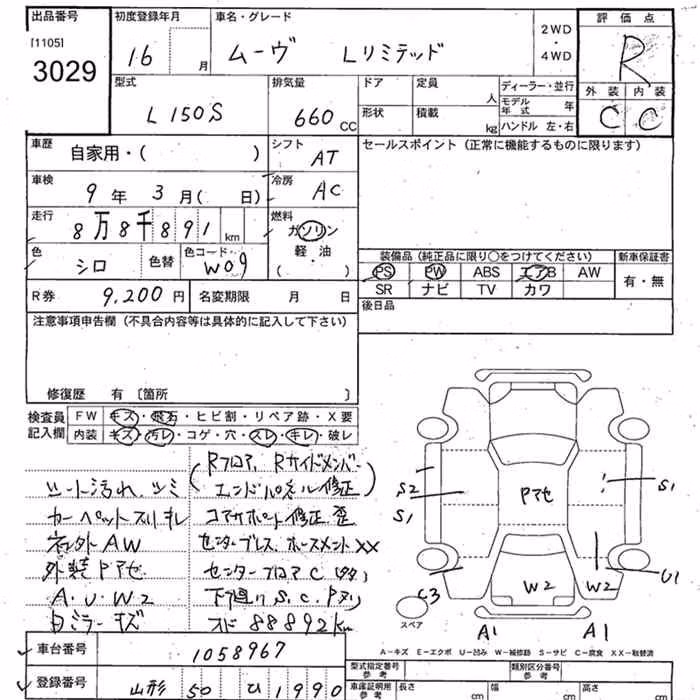 出品番号 初度登録年月 車名・グレード 評価点
[1105] 3029
16 月 ムーヴ Lリミテッド 2WD・4WD R
型式 排気量 ドア 定員 人 ディーラー・並行 外装 内装
L150S 660 CC 形状 積載 kg モデル年式 年 C C
ハンドル 左・右
車歴 自家用・( ) シフト AT セールスポイント(正常に機能するものに限ります)
車検 9年3月( 日) 冷房 AC
走行 8万8千891 km 燃料 ガソリン 軽・油 ( )
色 シロ 色替 色コード W09
装備品(純正品に限り○をつけてください) 新車保証書
PS PW ABS エアB AW 有・無
SR ナビ TV カワ
R券 9,200円 名変期限 月 日 後日品
注意事項申告欄(不具合内容等は具体的に記入して下さい)
修復歴 有〔箇所 〕
検査員記入欄 FW キズ・飛石・ヒビ割・リペア跡・X要
内装 キズ・汚レ・コゲ・穴・スレ・キレ・破レ
(Rフロア、Rサイドメンバー
シート汚れ、シミ エンドパネル修正)
カーペットスリキレ コアサポート修正、歪
ネット外AW センターブレス、ホースメントXX
外装Pアセ センターフロアC
A.U.W2 下廻りS.C.Pヌリ
白ミラーキズ オド88892km
S2
S1
Pアセ
S1
C3
W2
W2
U1
スペア
A1
A1
A-キズ E-エクボ U-凹み W-補修跡 S-サビ C-腐食 XX-取替済
車台番号 1058967
型式指定番号 参考 類別区分番号 参考
登録番号 山形 50 ひ 1990
車庫証明用 参考 長さ cm 幅 cm 高さ cm